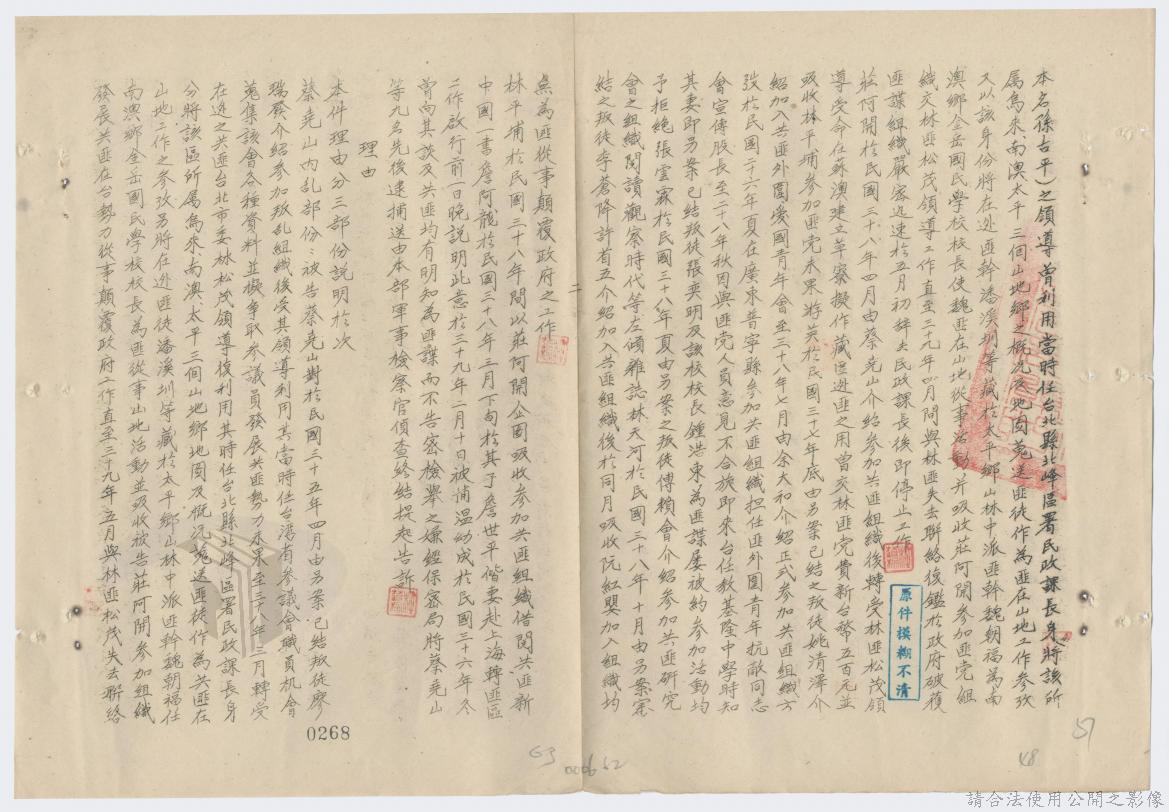 本名孫古平)之領導曾利用當時任台北縣北峰區署民政課長身將該所
屬烏來、南澳太平三個山地鄉之概況及地圖蒐送匪徒作為匪在山地工作參攷
又以該身份將在逃匪幹潘溪圳等藏於太平鄉山林中派匪幹魏朝福為南
澳鄉全岳國民學校校長使魏匪在山地從事活動並吸收莊阿開參加匪党組
織交林匪松茂領導工作直至三九年四月間與林匪失去聯絡復鑑於政府破獲
匪諜組織嚴密迅速於五月初辭去民政課長後即停止工作
莊阿開於民國三十八年四月由蔡堯山介紹參加共匪組織後轉受林匪松茂領
導受命在蘇澳建立草寮擬作藏匿逃匪之用曾交林匪党費新台幣五百元並
吸收林平埔參加匪党未果游英於民國三十七年底由另案已結之叛徒姚清澤介
紹加入共匪外圍愛國青年會至三十八年七月由余大和介紹正式參加共匪組織方
弢於民國二十六年夏在廣東普寧縣參加共匪組織担任匪外圍青年抗敵同志
會宣傳股長至二十八年秋因與匪党人員意見不合旋即來台任教基隆中學時知
其妻即另案已結叛徒張奕明及該校校長鍾浩東為匪諜屢被約參加活動均
予拒絕張雲霖於民國三十八年夏由另案之叛徒傅賴會介紹參加共匪研究
會之組織閱讀觀察時代等左傾雜誌林天河於民國三十八年十月由另案
結之叛徒李蒼降許有五介紹加入共匪組織後於同月吸收阮紅嬰加入組織均
二
無為匪從事顛覆政府之工作
林平埔於民國三十八年間以莊阿開企圖吸收參加共匪組織借閱共匪新
中國一書詹阿龍於民國三十八年三月下旬於其子詹世平偕妻赴上海轉匪區
工作啟行前一日晚說明此意於三十九年二月十日被捕溫幼成於民國三十六年冬
曾向其談及共匪均有明知為匪諜而不告密檢舉之嫌經保密局將蔡堯山
等九名先後逮捕送由本部軍事檢察官偵查終結提起告訴
理由
本件理由分三部份說明於次
蔡堯山內乱部份：被告蔡堯山對於民國三十五年四月由另案已結叛徒廖
瑞發介紹參加叛乱組織後受其領導利用其當時任台灣省參議會職員机會
蒐集該會各種資料並擬爭取參議員發展共匪勢力未果至三十八年三月轉受
在逃之共匪台北市委林松茂領導復利用其時任台北縣北峰區署民政課長身
分將該區所屬烏來、南澳、太平三個山地鄉地圖及概況蒐送匪徒作為共匪在
山地工作之參攷另將在逃匪徒潘溪圳等藏於太平鄉山林中派匪幹魏朝福任
南澳鄉全岳國民學校校長為匪從事山地活動並吸收被告莊阿開參加組織
發展共匪在台勢力從事顛覆政府工作直至三十九年五月與林匪松茂失去聯絡
原件模糊不清
0268
63
000652
48
51
請合法使用公開之影像